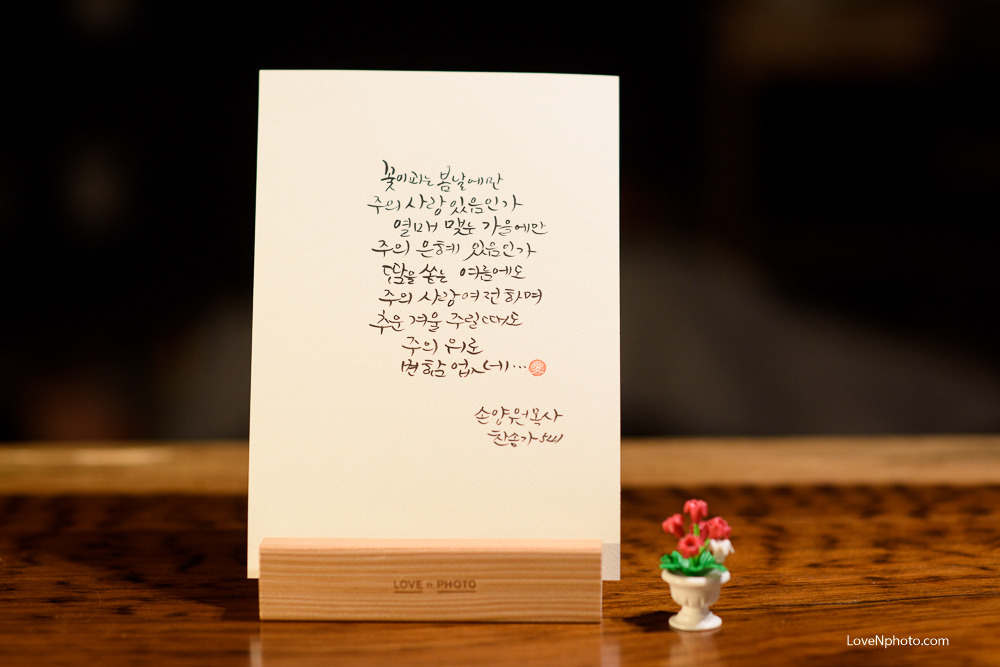 꽃이피는 봄날에만
주의 사랑 있음인가
열매 맺는 가을에만
주의 은혜 있음인가
땀을 쏟는 여름에도
주의 사랑 여전하며
추운 겨울 주릴때도
주의 위로
변함없네...
손양원목사
찬송가 541
LOVE n PHOTO
LoveNphoto.com